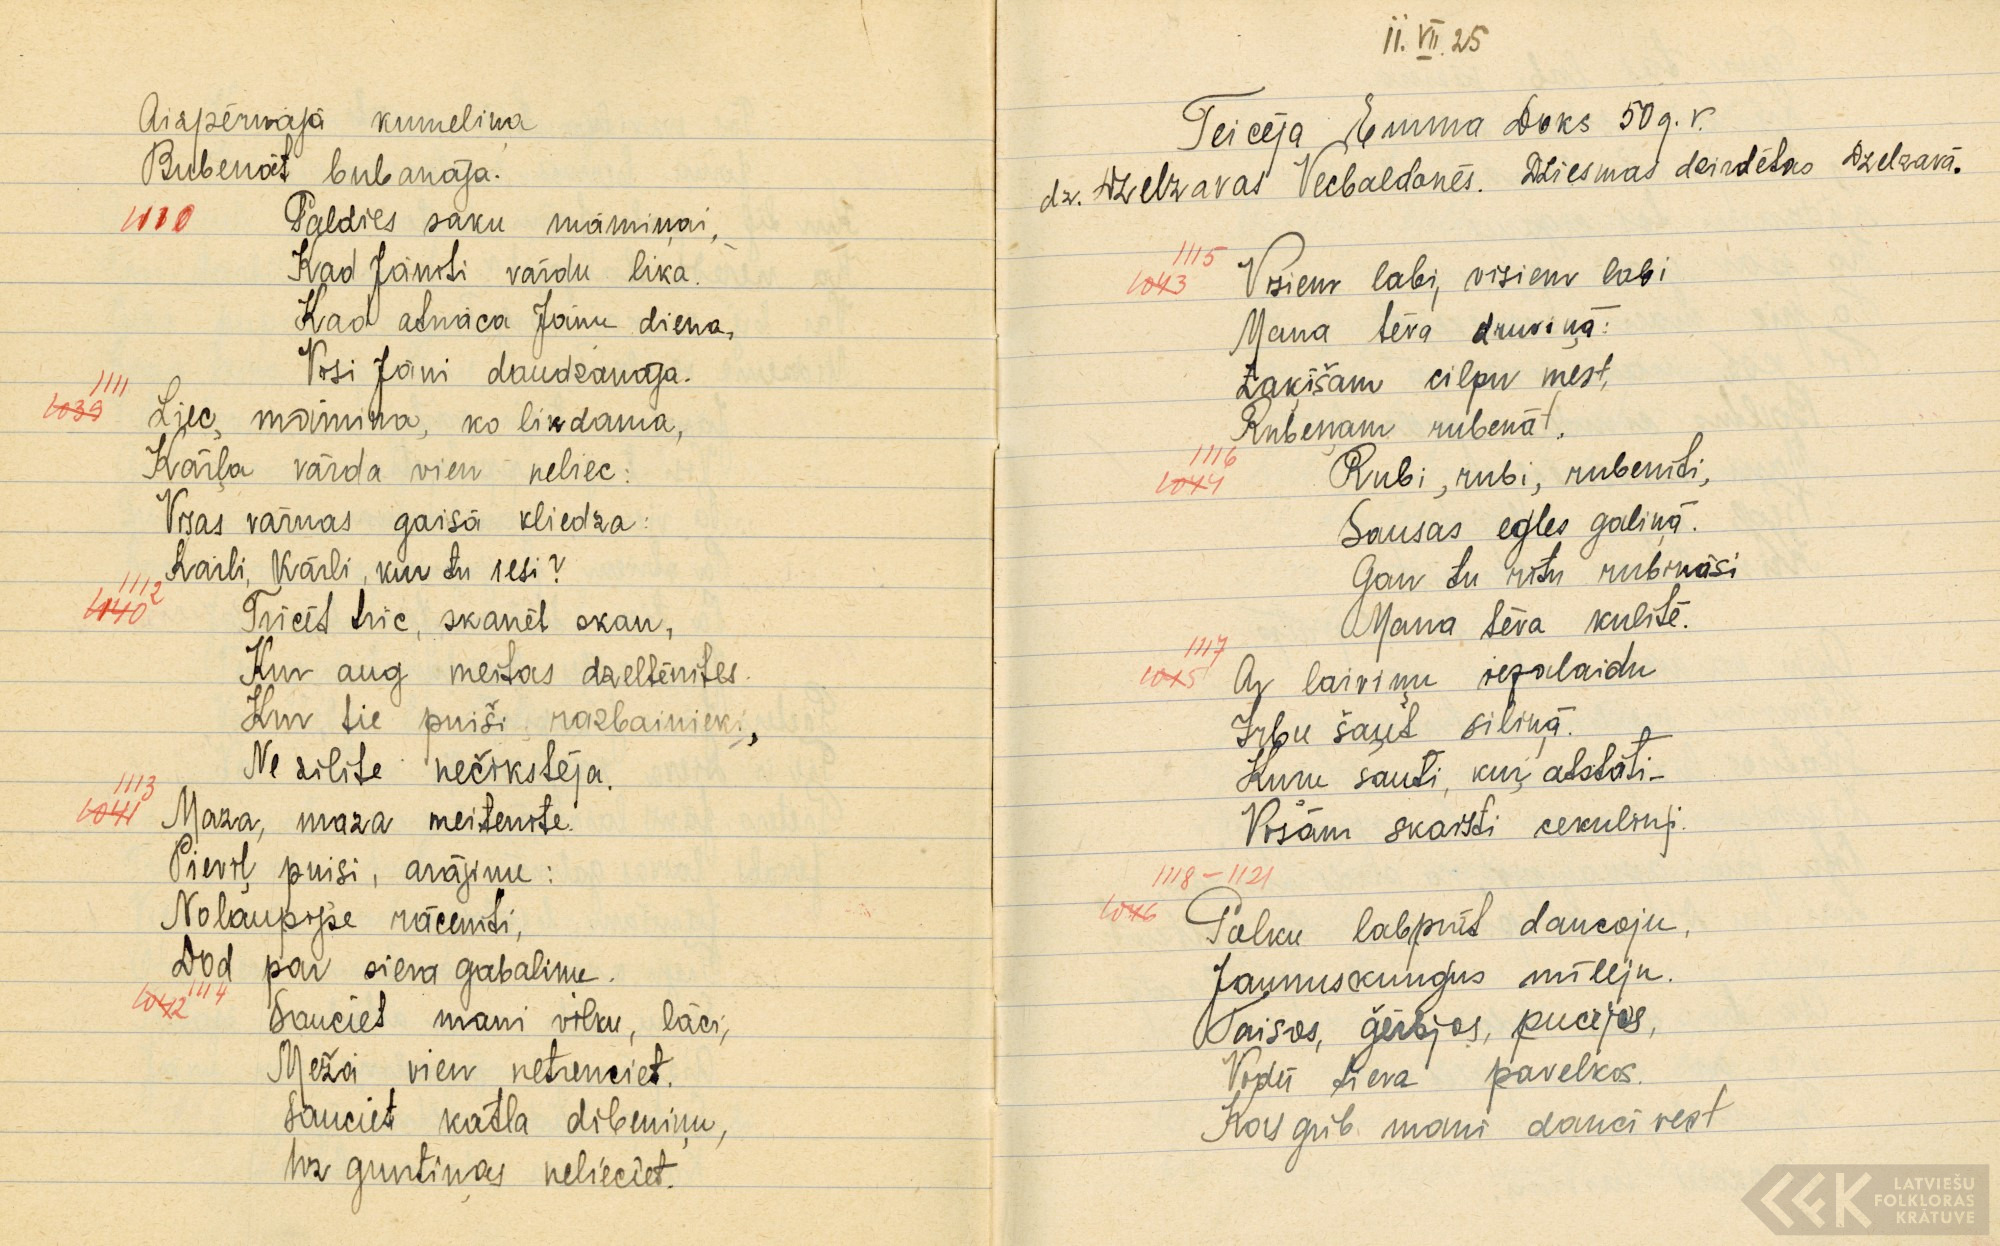 Aizpērnājā kumeliņa
Bubenāt bubanāja.
1110 Paldies saku māmiņai,
Kad Jānīti vārdu lika.
Kad atnāca Jāņu diena,
Visi Jāni daudzanāja.
1111
1039 Liec, māmiņa, ko likdama,
Kārļa vārda vien neliec:
Visas vārnas gaisā kliedza:
Kārli, Kārli, kur tu iesi?
1112
1040 Tricēt tric, skanēt skan,
Kur aug meitas dzeltēnītes.
Kur tie puiši razbainieki,
Ne zilīte nečiksteja.
1113
1041 Maza, maza meitenīte
Pievīļ puisi, arājiņu:
Nolaupījse rācenīti,
Dod par siera gabaliņu.
1042 1114
Sauciet mani vilku, lāci,
Mežā vien netrenciet.
Sauciet katla dibeniņu,
Uz guntiņas nelieciet.
11. VII. 25
Teicēja Emma Doks 50 g. v.
dz. Dzelzavas Vecbaldonēs. Dziesmas dzirdētas Dzelzavā.
1115
1043 Visiem labi, visiem labi
Mana tēva druviņā:
Zaķīšam cilpu mest,
Rubeņam rubenāt.
1116
1044 Rubi, rubi, rubenīti,
Sausas egles galiņā.
Gan tu rītu rubināsi
Mana tēva kulītē.
1117
1045 Ar laiviņu iezalaidu
Irbu šaut siliņā.
Kuru šauti, kuŗ atstāti –
Visām skaisti cekuliņi.
1118 – 1121
1046 Polku labprāt dancoju,
Jaunuskungus mīleju.
Taisos, ģērbjos, pucejos,
Vidū tieva pavelkos.
Kas grib mani danci vest
LATVIEŠU
FOLKLORAS
KRĀTUVE